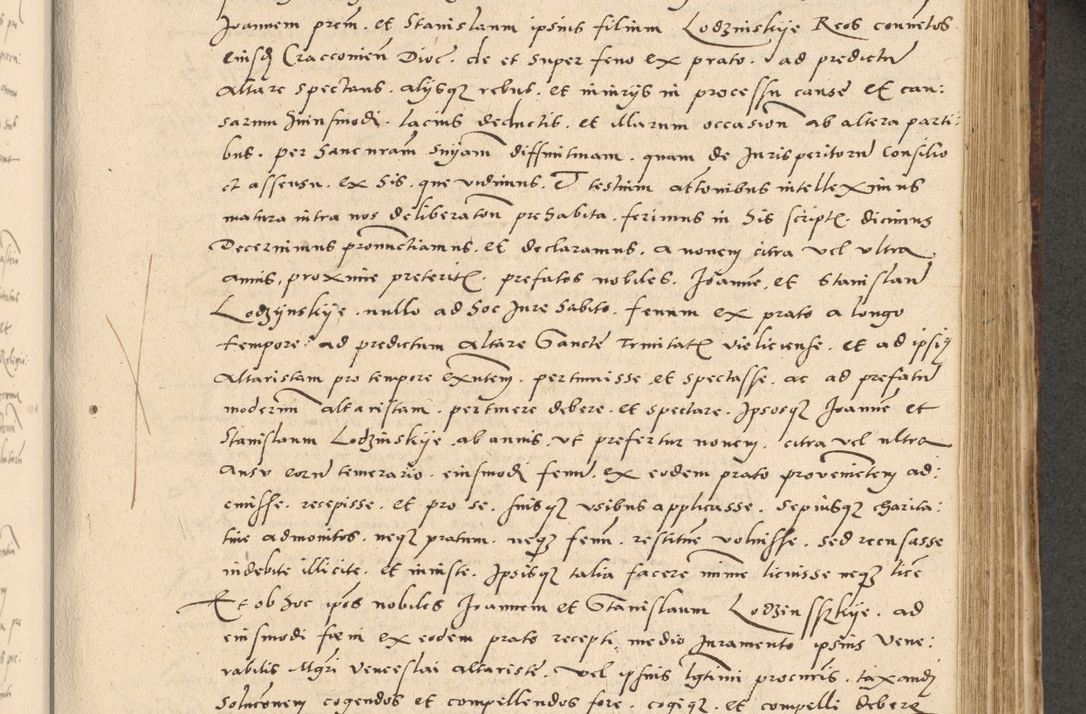 Joannem prem. et Stanislaum ipsius filium Lodzinskije Reos convētos
eiusdē Cracconieñ Dioc. de et super feno ex prato. ad predictū
altare spectans. alijsqȝ rebus. et iniurijs in processu cause et cau:
sarum huiusmodi. lacius deductis. et illarum occasion̄ ab altera parti:
bus. per hanc nram̄ snȳam diffinitiuam. quam de Jurisperitorū consilio
et assensu. ex his. que vidimus. et testium attōnibus intelleximus
matura intra nos deliberatōn prehabita. ferimus in his script. dicimus
Decernimus pronūctiamus. et declaramus. a novem citra vel ultra
annis. proxime preterit. prefatos nobiles. Joānē. et Stanislau̅
Lodzÿnskije. nullo ad hoc Jure habito. fenum ex prato a longo
tempore. ad predictum altare Sancte Trinitat. vieliciense. et ad ipsiꝰ
altaristam pro tempore exn̄tem. pertinuisse et spectasse. ac ad prefatū
modernū altaristam. pertinere debere. et spectare. Ipsosqȝ Joannē et
Stanislaum Lodzinskije. ab annis. ut prefertur novem. citra vel ultra
ausu eorū temerario. eiusmodi fenū. ex eodem prato provenietem ad:
emisse. recepisse. et pro se. suisqȝ usibus applicasse. sepiusqȝ charita:
tiue admonitos. neqȝ pratum. neqȝ fenū. restituē voluisse. Sed recusasse
indebite illicite. et iniuste. Ipsisqȝ talia facere mīme licuisse neqȝ licē
Et ob hoc ipōs nobiles Joannem et Stanislaum Lodzensszkije. ad
eiusmodi fœni ex eodem prato recepti medio Juramento ipsius Vene:
rabilis Mgri Venceslai altariste. vel ipsius lgtimi procuris. taxandȩ
Solucōnem cogendos et compellendos fore. cogiqȝ. et compelli debere